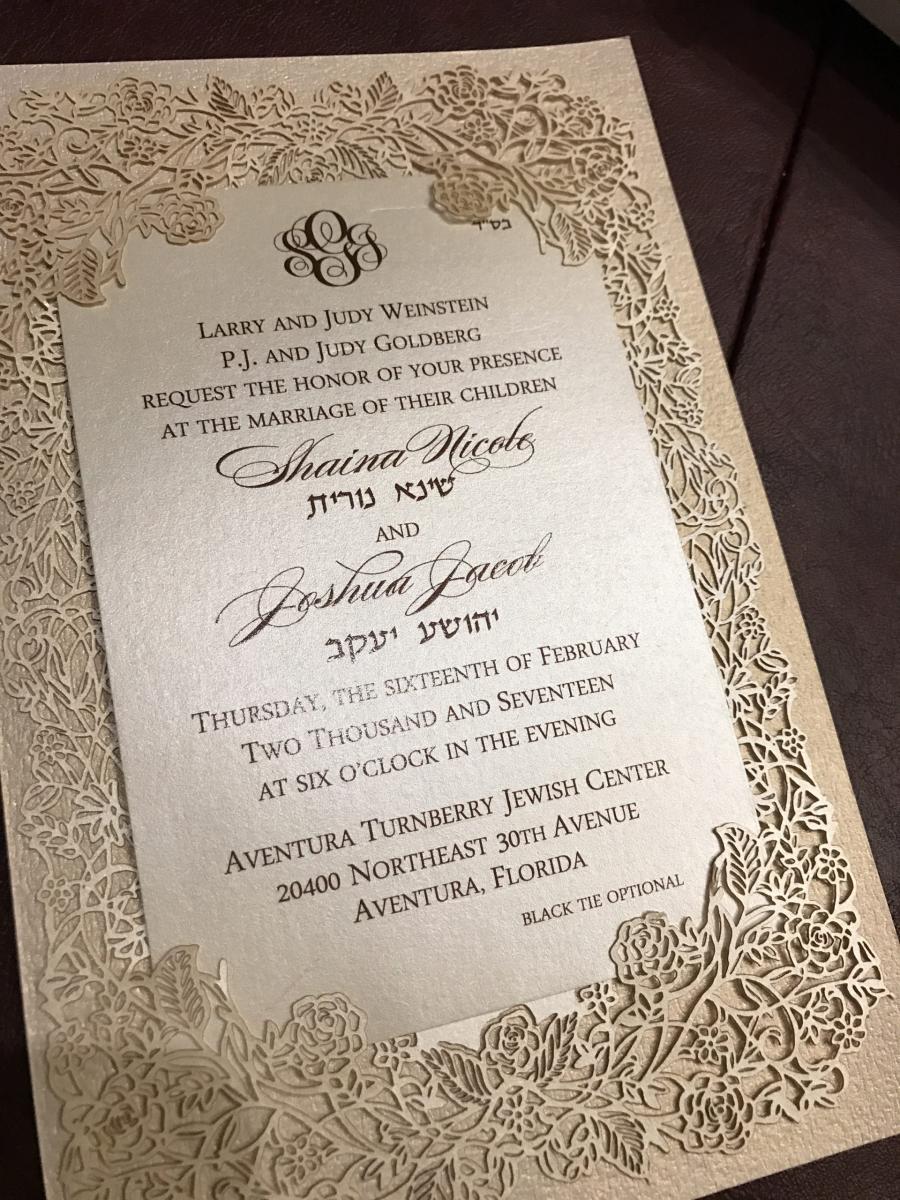 בס"ד
SGJ
LARRY AND JUDY WEINSTEIN
P.J. AND JUDY GOLDBERG
REQUEST THE HONOR OF YOUR PRESENCE
AT THE MARRIAGE OF THEIR CHILDREN
Shaina Nicole
שינא נורית
AND
Joshua Jacob
יהושע יעקב
THURSDAY, THE SIXTEENTH OF FEBRUARY
TWO THOUSAND AND SEVENTEEN
AT SIX O'CLOCK IN THE EVENING
AVENTURA TURNBERRY JEWISH CENTER
20400 NORTHEAST 30TH AVENUE
AVENTURA, FLORIDA
BLACK TIE OPTIONAL